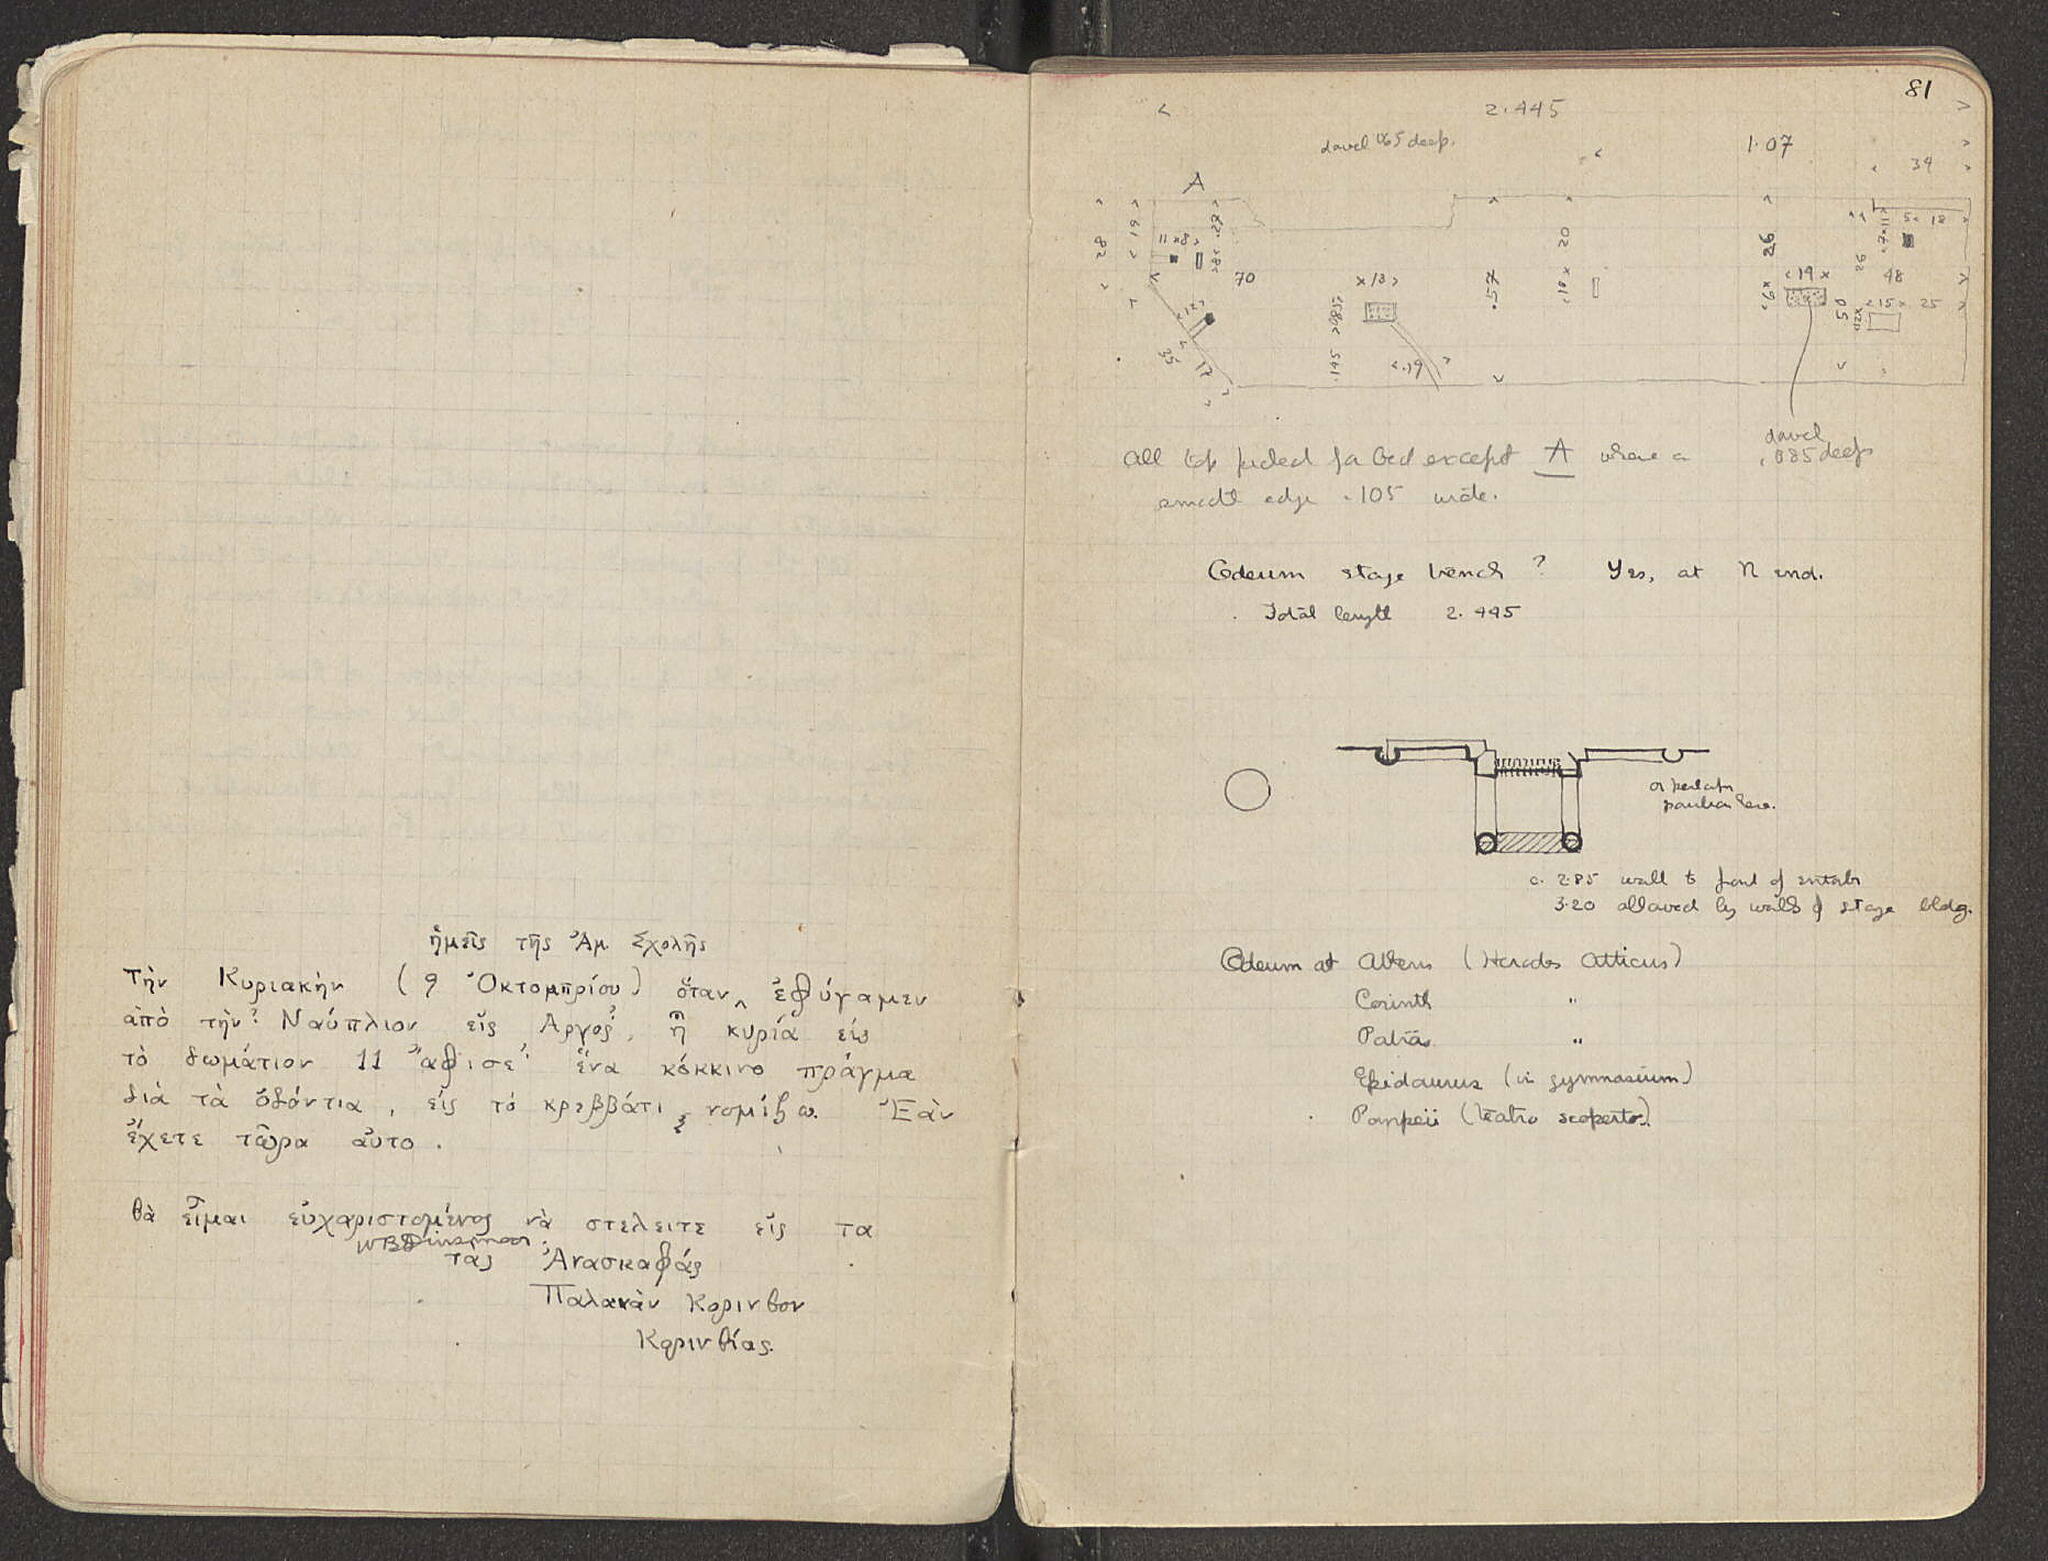 ἡμεῖς τῆς Ἀμ. Σχολῆς
Τὴν Κυριακὴν (9 Ὀκτομπρίου) ὅταν ^ ἐφύγαμεν
ἀπὸ τὴν Ναύπλιον εἰς Ἀργος, ἡ κυρία εἰς
τὸ δωμάτιον 11 ἄφισε ἕνα κόκκινο πράγμα
διὰ τὰ ὀδόντια, εἰς τὸ κρεββάτι, νομίζω. Ἐὰν
ἔχετε τῶρα αὐτο.
θὰ εἶμαι εὐχαριστομένος νὰ στελειτε εἰς τα
WBDinsmoor
τὰς Ἀνασκαφάς
Παλαιὰν Κορινθον
Κορινθίας.
81
2.445
dowel 065 deep.
1.07
34
A
82
19
28
11 8
8
70
35 17
13
085
.145
.19
.57
20
.10
26
19
9
dowel
.085 deep
50
26
48
15 25
12
7 11
5 18
All top picked for bed except A where a
smooth edge .105 wide.
Odeum stage bench? Yes, at N end.
Total length 2.445
or perhaps
c. 2.85 wall to front of
3.20 allowed by walls of stage bldg.
Odeum at Athens (Herodes Atticus)
Corinth "
Patras "
Epidaurus (in gymnasium)
Pompeii (teatro scoperto)